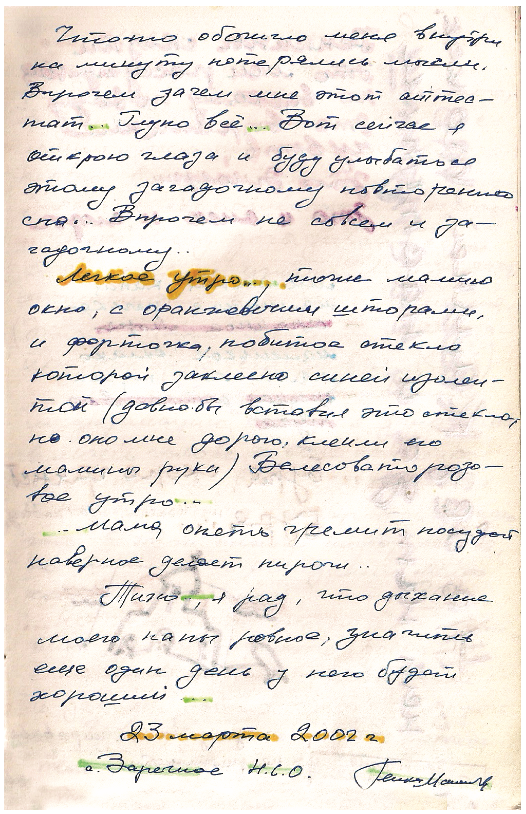 Что-то обожгло меня внутри
на минуту потерялись мысли.
Впрочем зачем мне этот аттес-
тат... Глупо всё... Вот сейчас я
открою глаза и буду улыбаться
этому загадочному повторению
сна... Впрочем не совсем и за-
гадочному..
Легкое утро.... тоже мамино
окно, с оранжевыми шторами,
и форточка, побитое стекло
которой заклеено синей изолен-
той (давно бы вставил это стекло,
но оно мне дорого, клеили его
мамины руки) Белесовато розо-
вое утро...
...Мама опять гремит посудой
наверное делает пироги..
Тихо..., я рад, что дыхание
моего папы ровное, значить
еще один день у него будет
хороший ...
23 марта 2002 г
с. Заречное Н.С.О.